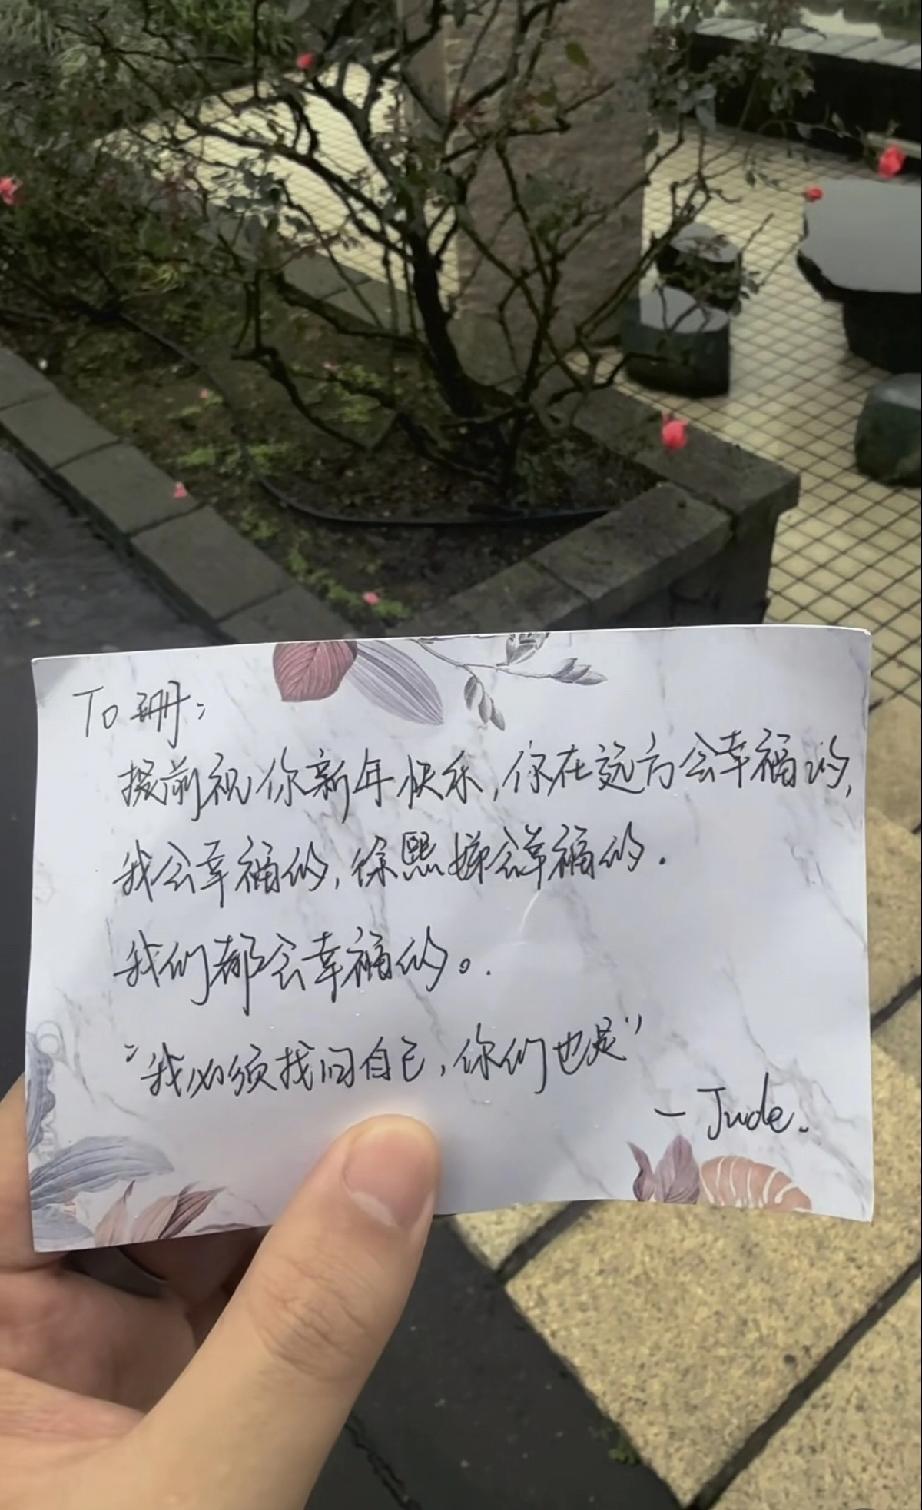 To 珊:
提前祝你新年快乐,你在远方会幸福的,
我会幸福的,徐熙娣会幸福的.
我们都会幸福的。.
"我必须找回自己,你们也是"
— Jude.